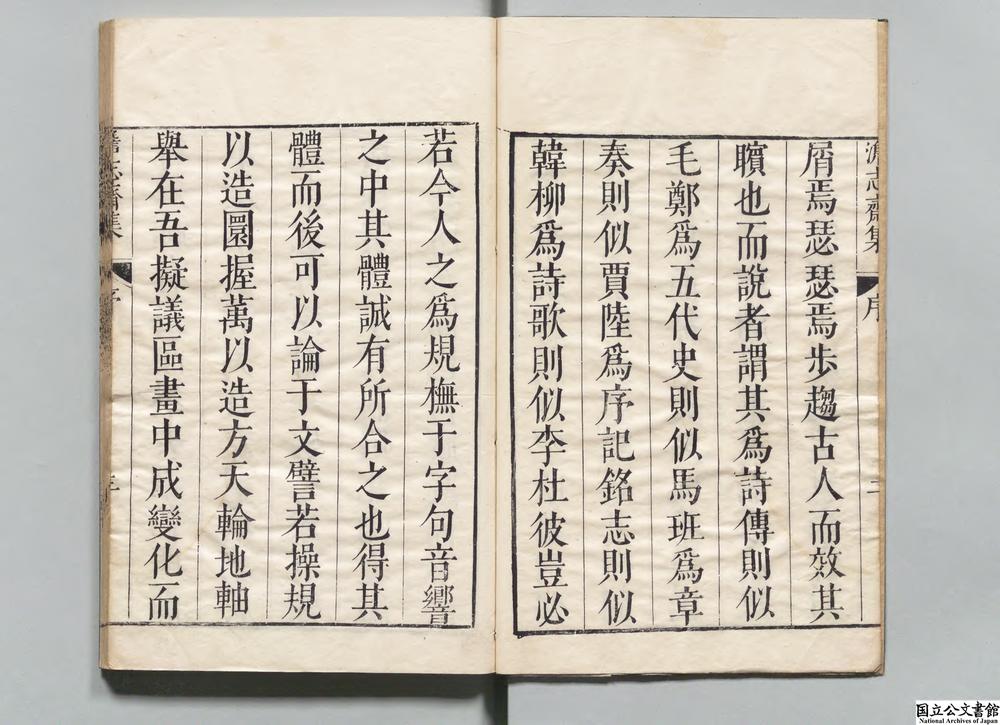 澹志齋集 序
屑焉瑟瑟焉步趨古人而效其
矉也而說者謂其爲詩傳則似
毛鄭爲五代史則似馬班爲章
奏則似賈陸爲序記銘志則似
韓柳爲詩歌則似李杜彼豈必
若今人之爲規橅于字句音響
之中其體誠有所合之也得其
體而後可以論于文譬若操規
以造圜握萬以造方天輪地軸
舉在吾擬議區畫中成變化而
澹志齋集 序
国立公文書館
National Archives of Japan